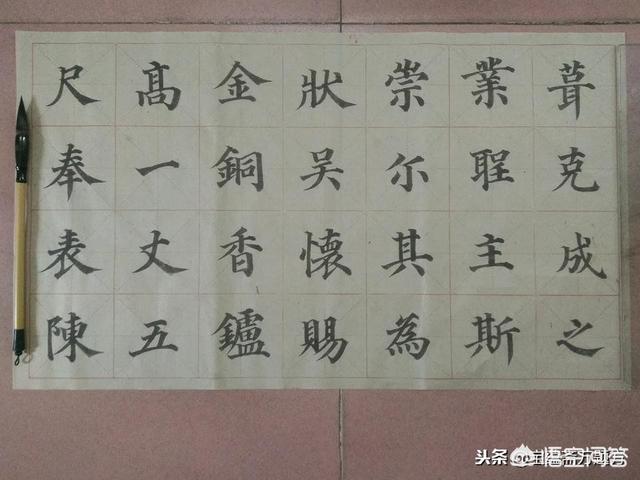 葺克成之
業聖主斯
崇尒其為
狀吴懷賜
金銅香鑪
髙一丈五
尺奉表陳
头条
悟空问答